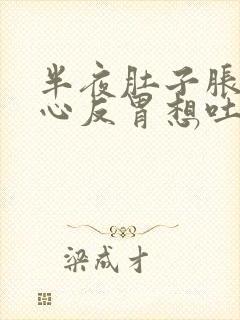 半夜肚子脹
心反胃想吐,
梁成才